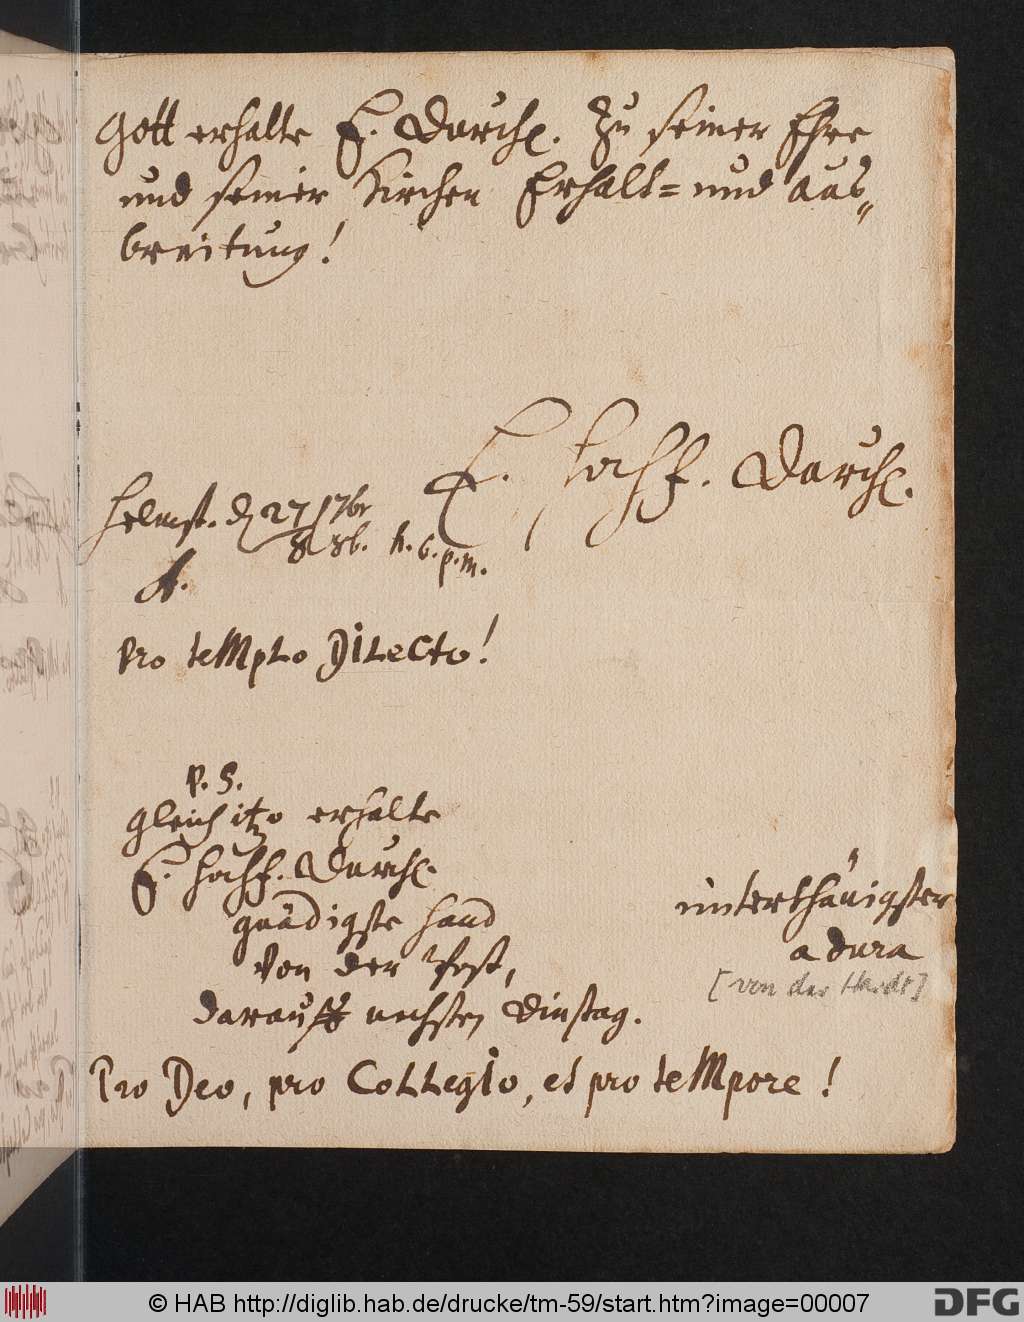 Gott erhalte E. Durchl. zu seiner Ehre
und seiner Kirchen Erhalt= und aus„
breitung!
E. Hochf. Durchl.
Helmst. d. 27 17br
88b. h. 6. p.m.
A.
Pro teMpLo DiLeCto!
P. S.
Gleich itzo erhalte
E. Hochf. Durchl.
gnädigste Hand
von der Post,
darauff nechsten Dinstag.
unterthänigster
a dura
[von der Hardt]
Pro Deo, pro CoLLegIo, et pro teMpore!
© HAB http://diglib.hab.de/drucke/tm-59/start.htm?image=00007
DFG